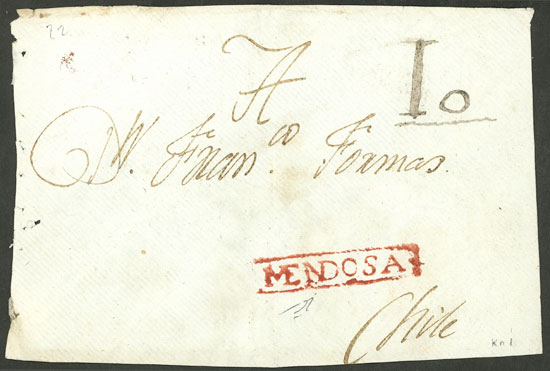 22.
A
Io
Dn. Franco. Formas.
MENDOSA
Chile
Kn 1